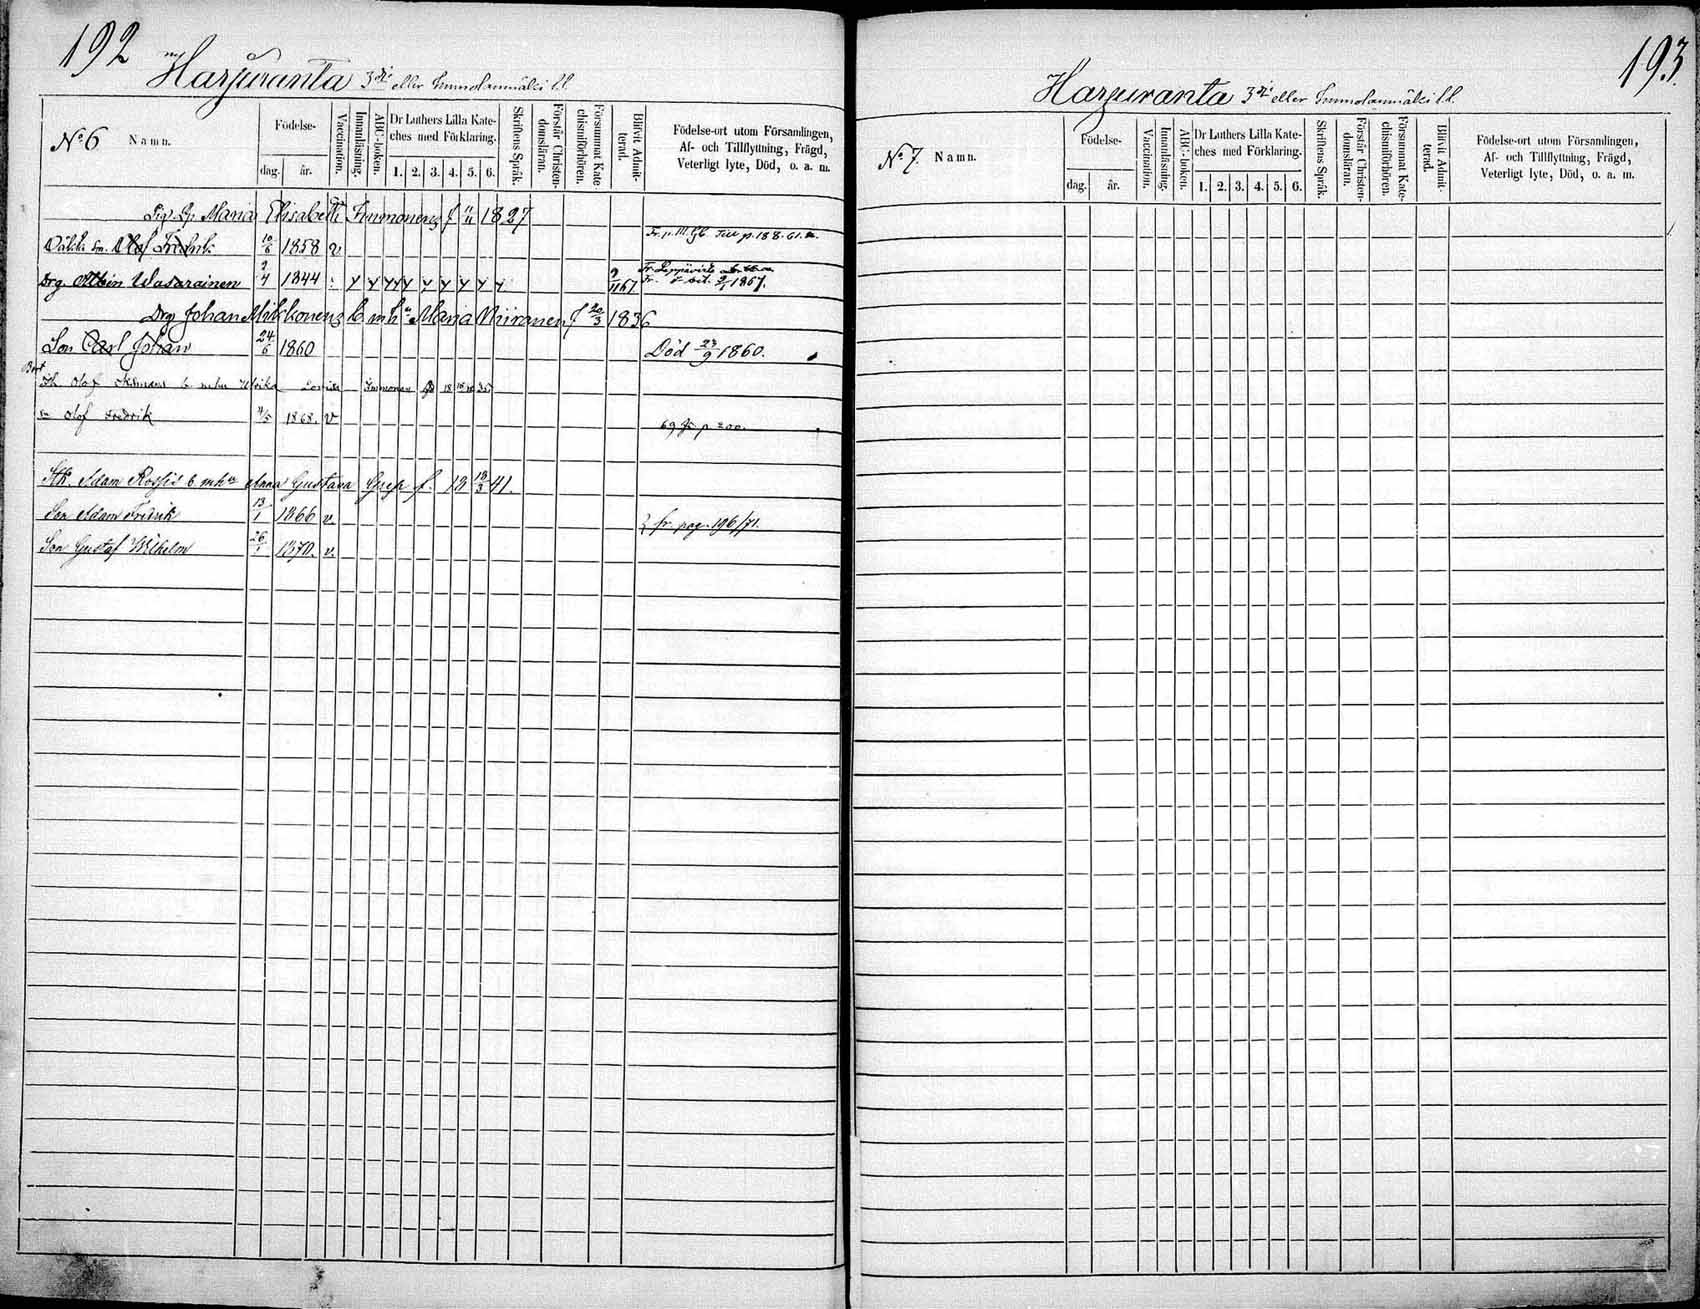 192
Harjuranta 3die eller Immolanmäki ll.
No 6 Namn. Födelse- dag. år. Vaccination. Innanläsning. ABC-boken. Dr Luthers Lilla Kateches med Förklaring. 1. 2. 3. 4. 5. 6. Skriftens Språk. Förstår Christendomsläran. Försummat Katechismiförhören. Blifvit Admitterad. Födelse-ort utom Församlingen, Af- och Tillflyttning, Frägd, Veterligt lyte, Död, o. a. m.
Maria Elisabeth Immonen f 1827
Olof Fredrik 10/6 1858 v p. 188. 61.
Drg. Wasarainen 2/4 1844 Fr. Leppävirta 1867.
Drg Johan Mikkonen b. m. h. Maria Miiranen f 20/3 1836
Son Carl Johan 24/6 1860 Död 23/9 1860.
Bort
Olof b. mhu Ulrika Lovisa Immonen
Olof Fredrik 1868. v 69 p. 200.
Adam b mhu Anna Gustava f. 18 18/3 41.
Son Adam Fredrik 13/1 1866 v fr. pag. 196/71.
Son Gustaf Wilhelm 1870. v.
193.
Harjuranta 3die eller Immolanmäki ll.
No 7. Namn. Födelse- dag. år. Vaccination. Innanläsning. ABC-boken. Dr Luthers Lilla Kateches med Förklaring. 1. 2. 3. 4. 5. 6. Skriftens Språk. Förstår Christendomsläran. Försummat Katechismiförhören. Blifvit Admitterad. Födelse-ort utom Församlingen, Af- och Tillflyttning, Frägd, Veterligt lyte, Död, o. a. m.